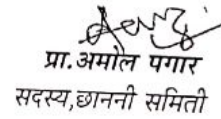 प्रा. अमोल पगार
सदस्य,छाननी समिती